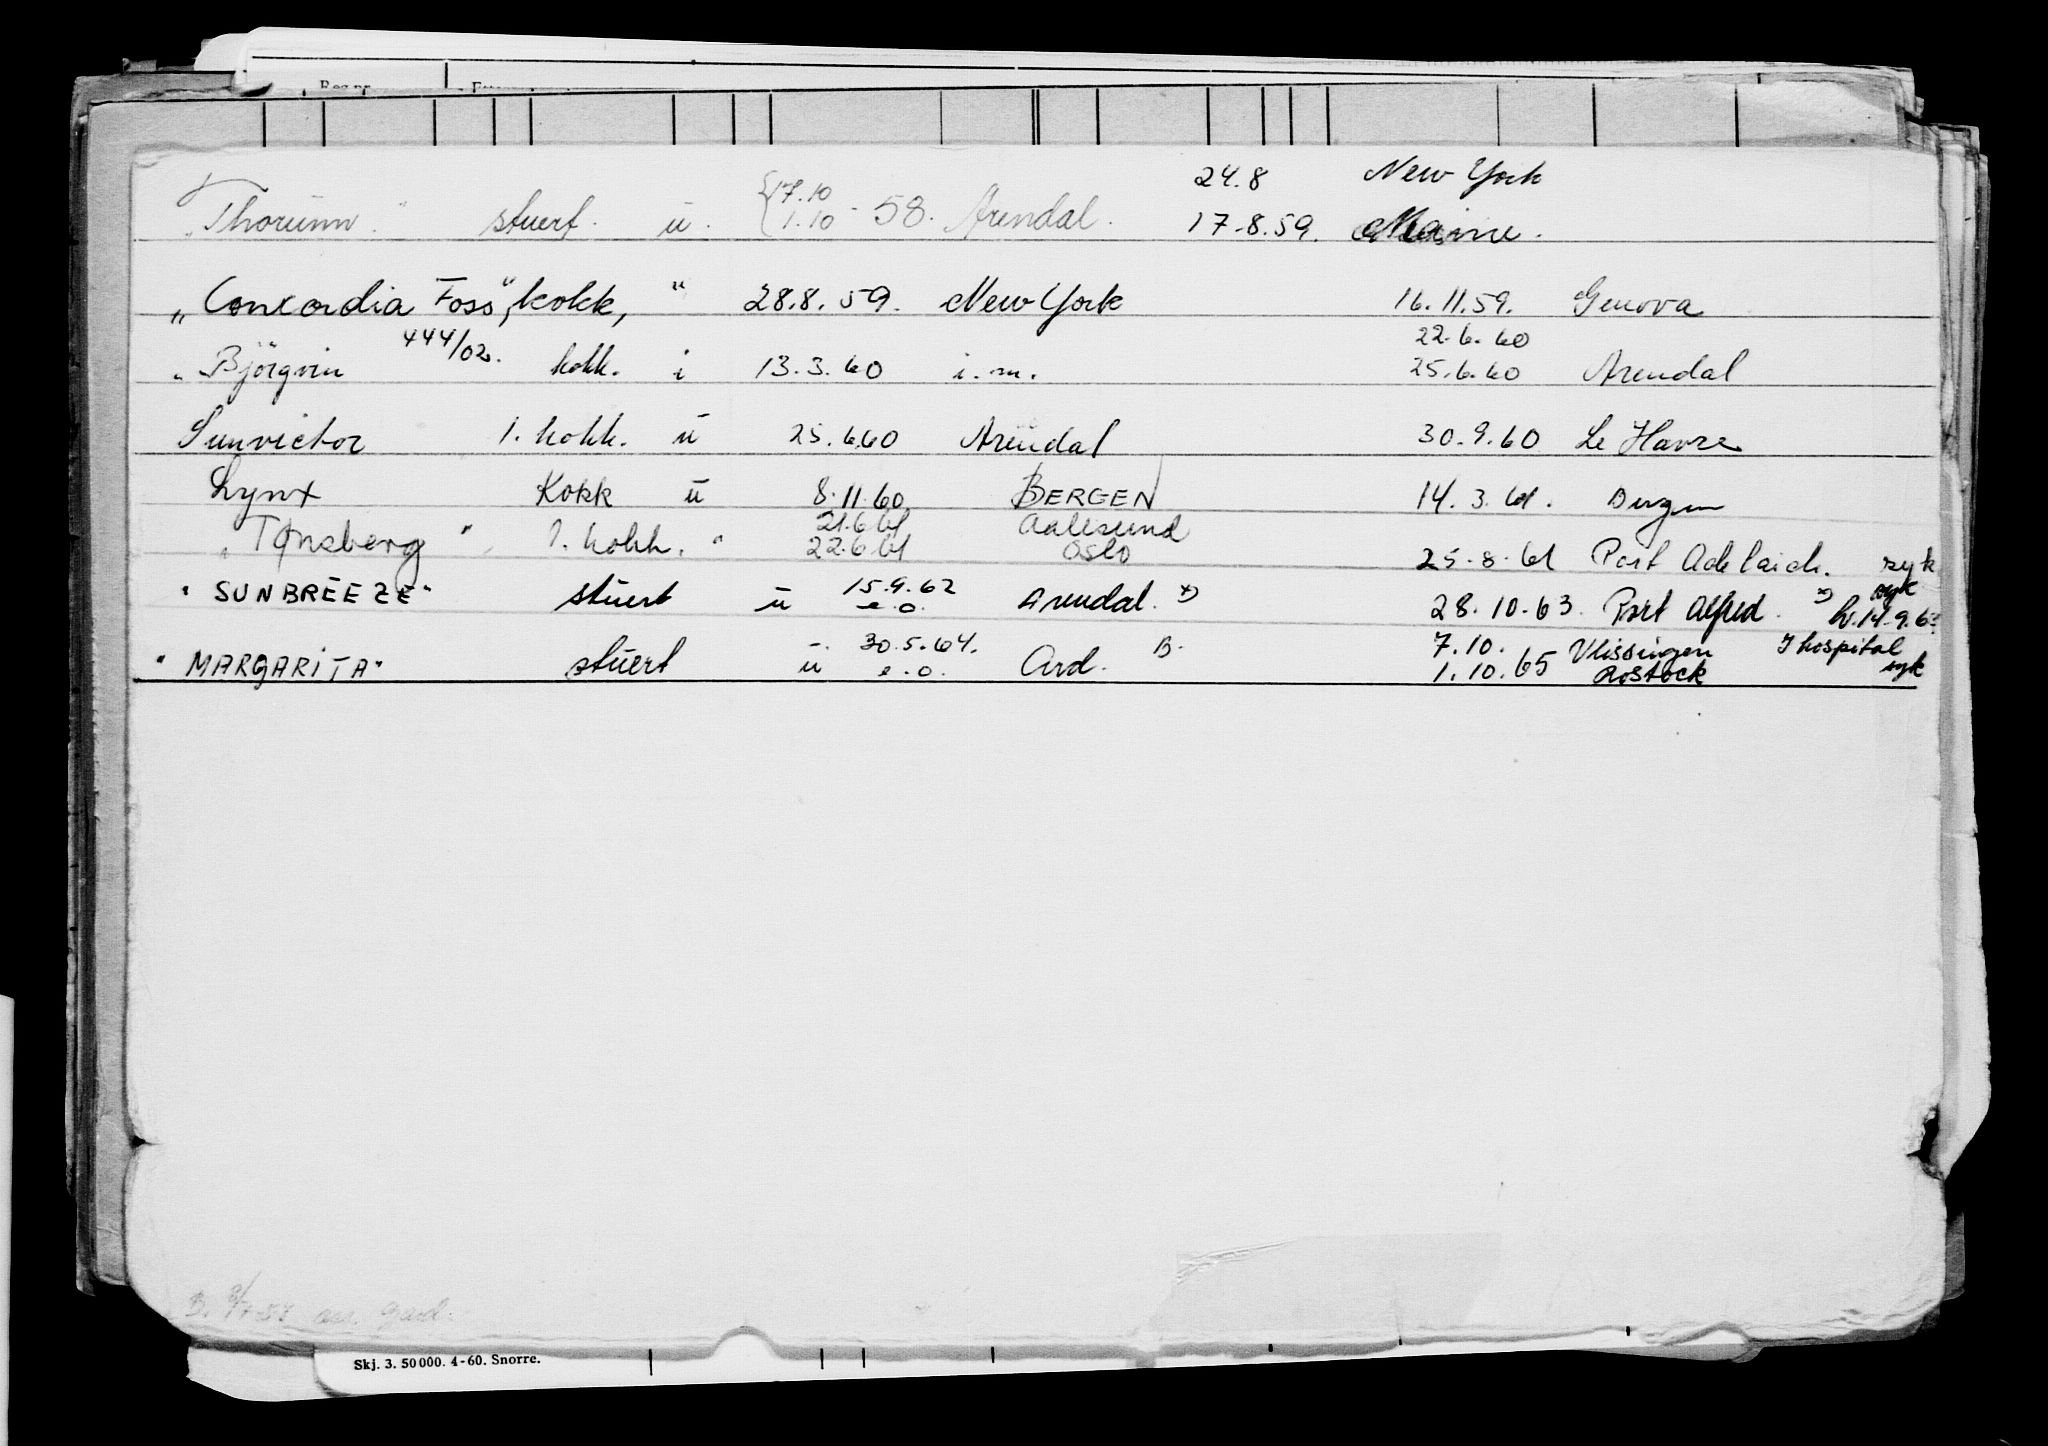 24.8 New York
"Thorunn." stuert. u. {17.10 1.10 - 58. Arendal. 17.8.59. Maine.
"Concordia Foss", kokk, " 28.8.59. New York 16.11.59. Genova
444/02. 22.6.60
"Björgvin kokk. i 13.3.60 i.m. 25.6.60 Arendal
Sunvictor 1. kokk. u 25.6.60 Arendal 30.9.60 Le Havre
Lynx Kokk u 8.11.60 BERGEN 14.3.61. Bergen
21.6.61 Aalesund
"Tønsberg" 1. kokk. " 22.6.61 Oslo 25.8.61 Port Adelaide. syk
"SUNBREEZE" stuert u 15.9.62 e.o. Arendal. *) 28.10.63 Port Alfred. *) syk
h. 14.9.63
"MARGARITA" stuert u 30.5.64. e.o. Ard. B. 7.10. Vlissingen I hospital
1.10.65 Rostock syk
Skj. 3. 50000. 4-60. Snorre.